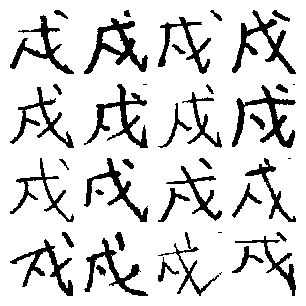 戍戍戍戍
戍戍戍戍
戍戍戍戍
戍戍戍戍